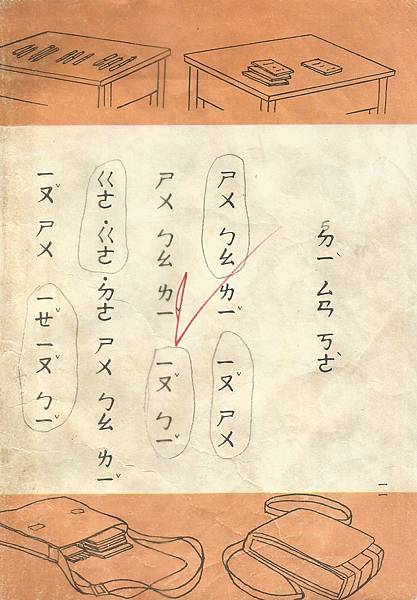 ㄉㄧˋ ㄙㄢ ㄎㄜˋ
ㄕㄨ ㄅㄠ ㄌㄧˇ ㄧㄡˇ ㄕㄨ
ㄕㄨ ㄅㄠ ㄌㄧˇ ㄧㄡˇ ㄅㄧˇ
ㄍㄜ ˙ㄍㄜ ˙ㄉㄜ ㄕㄨ ㄅㄠ ㄌㄧˇ
ㄧㄡˇ ㄕㄨ ㄧㄝˇ ㄧㄡˇ ㄅㄧˇ
一一